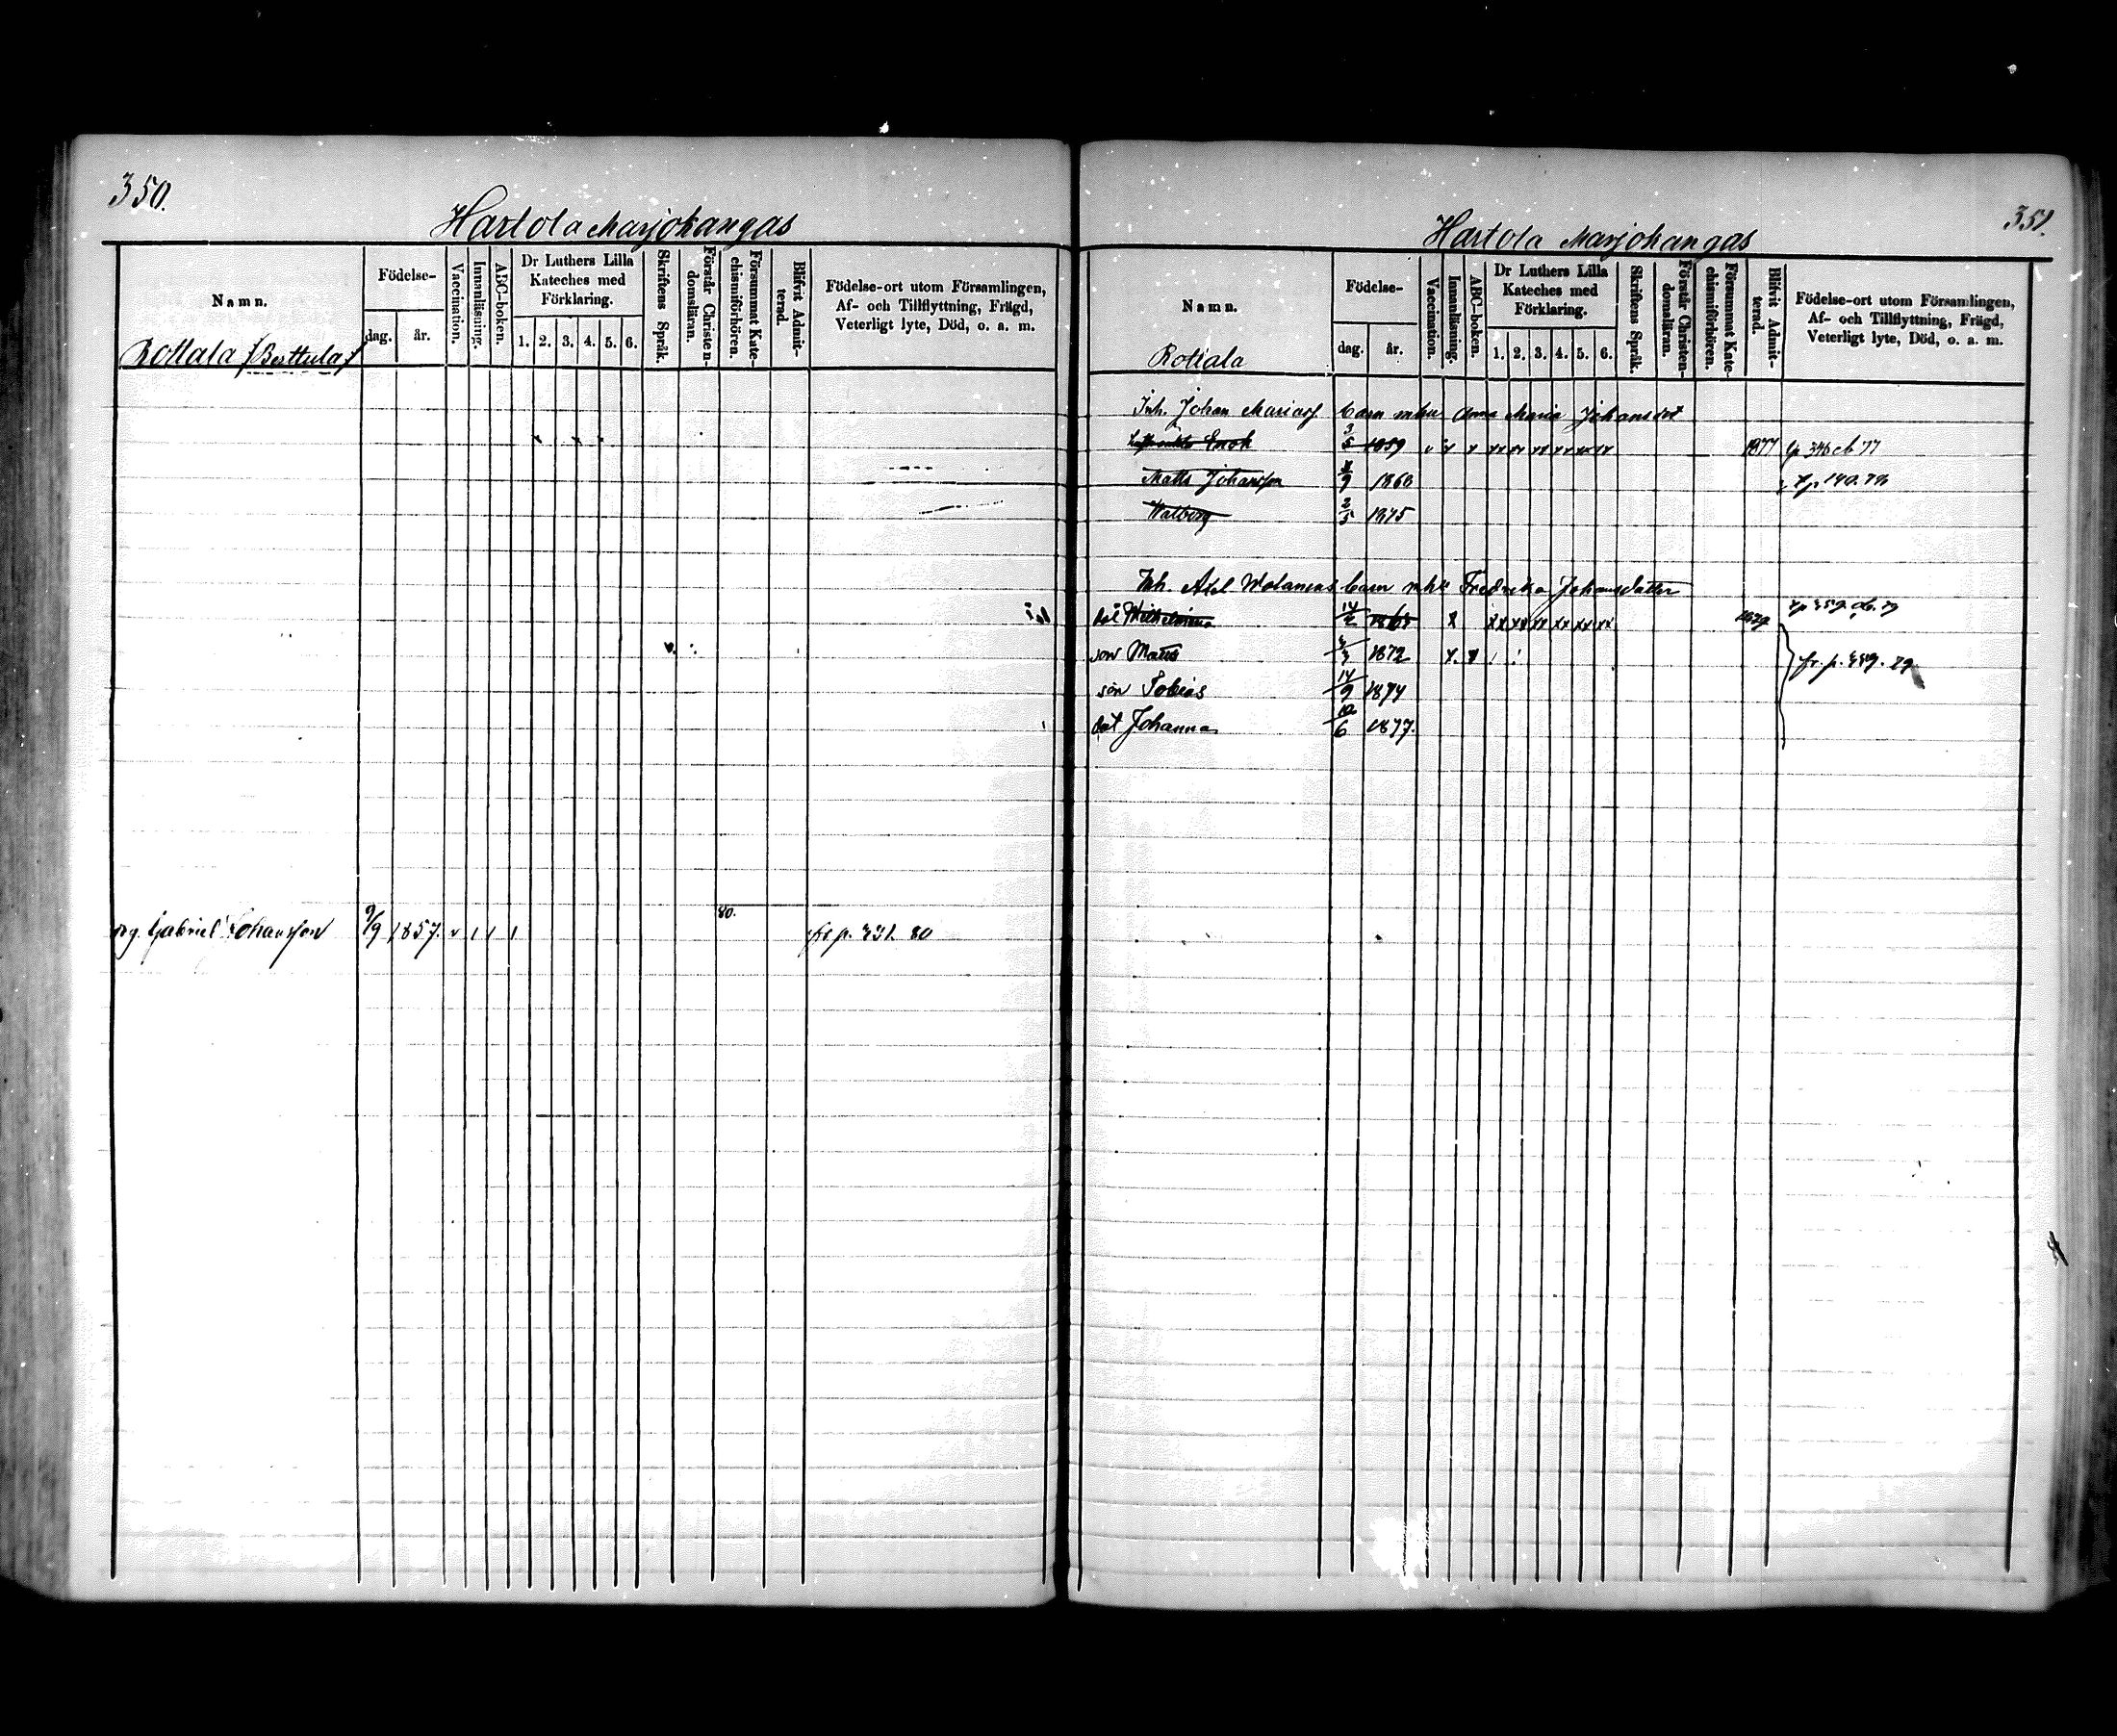 350.
Hartola Marjokangas
Namn.
Födelse-
dag. år.
Vaccination.
Innanläsning.
ABC-boken.
Dr Luthers Lilla
Kateches med
Förklaring.
1. 2. 3. 4. 5. 6.
Skriftens Språk.
Förstår Christen-
domsläran.
Försummat Kate-
chismiförhören.
Blifvit Admit-
terad.
Födelse-ort utom Församlingen,
Af- och Tillflyttning, Frägd,
Veterligt lyte, Död, o. a. m.
Rottala (Berttula)
80.
Gabriel Johansson 9/9 1857. fr p. 331 80
351.
Hartola Marjokangas
Namn.
Födelse-
dag. år.
Vaccination.
Innanläsning.
ABC-boken.
Dr Luthers Lilla
Kateches med
Förklaring.
1. 2. 3. 4. 5. 6.
Skriftens Språk.
Förstår Christen-
domsläran.
Försummat Kate-
chismiförhören.
Blifvit Admit-
terad.
Födelse-ort utom Församlingen,
Af- och Tillflyttning, Frägd,
Veterligt lyte, Död, o. a. m.
Rottala
Inh. Johan barn Anna Maria Johansdot
Enok 3/5 1859 1877
Matts Johansson 1860 140.
Walborg 2/5 1875
Inh. Axel barn Fredrika Johansdotter
Wilhelmina 14/2
son Matts 1872 fr. p. 359. 79
son Tobias 14/9 1874
dot Johanna 10/6 1877.